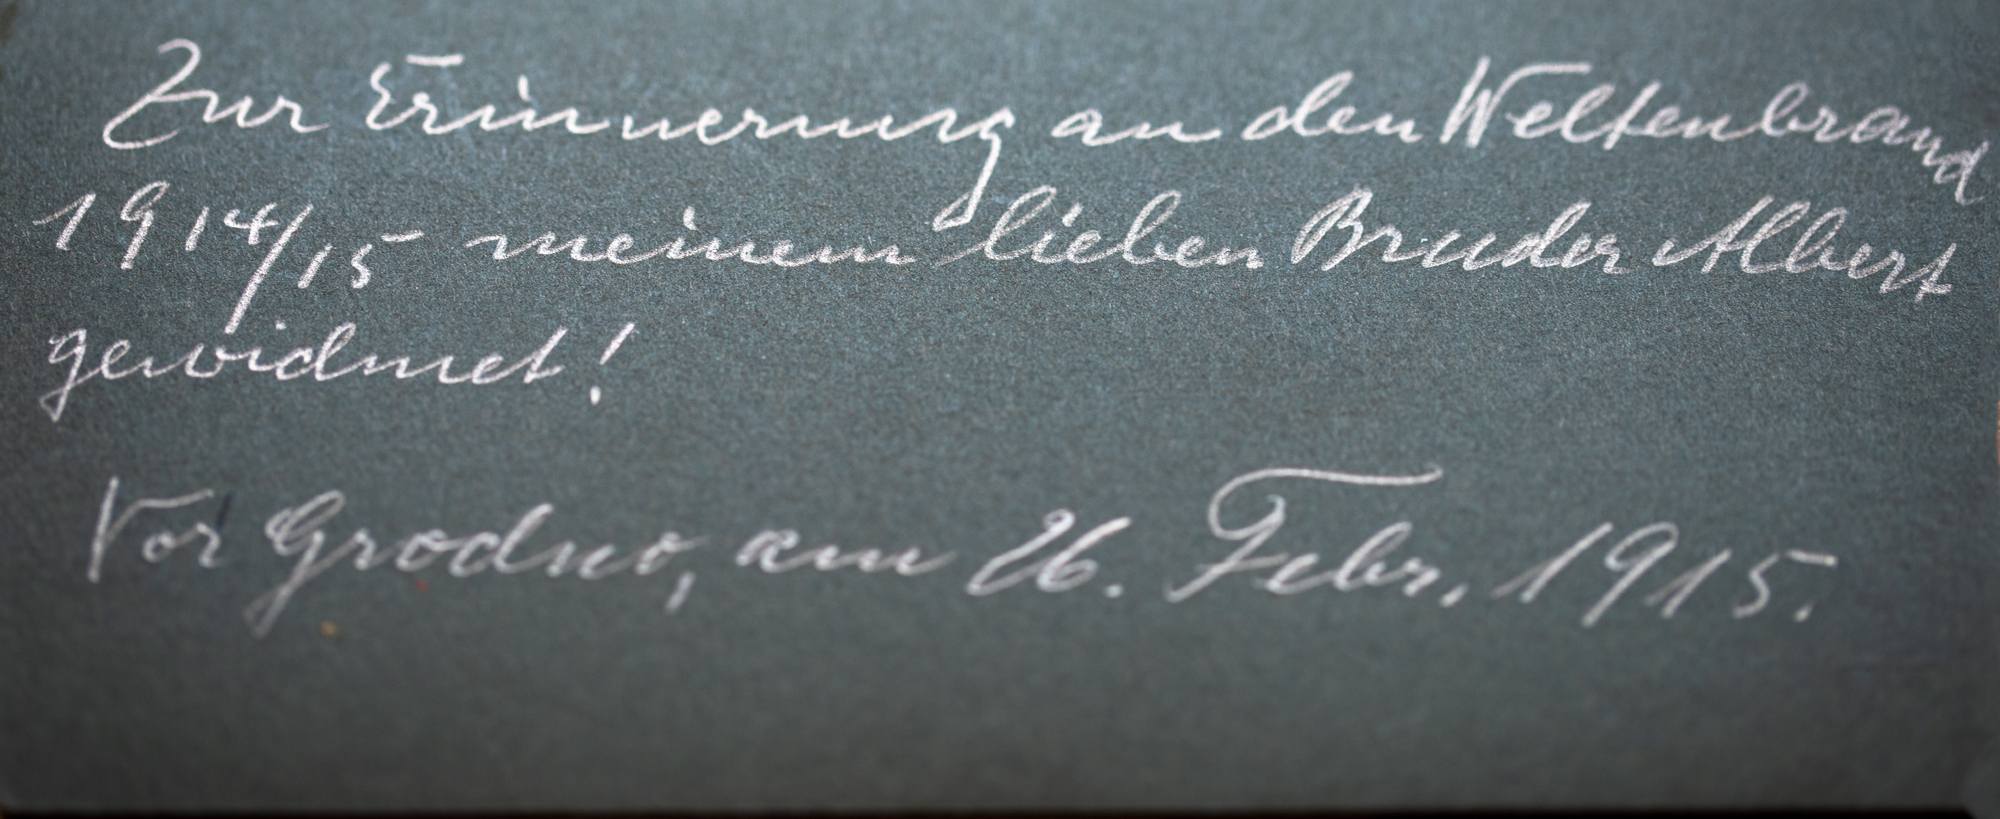 Zur Erinnerung an den Weltenbrand
1914/15 meinem lieben Bruder Albert
gewidmet!
Vor Grodno, am 26. Febr. 1915.